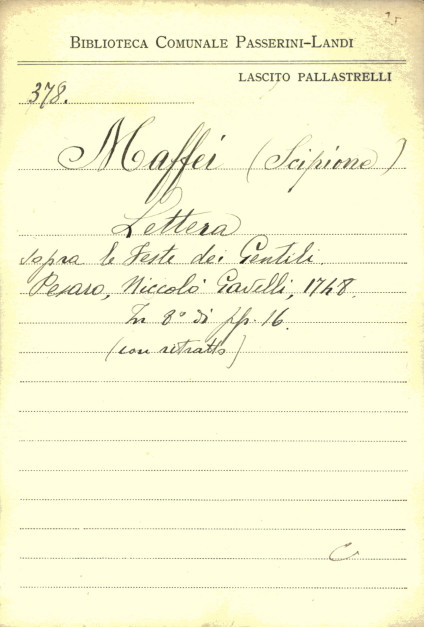 BIBLIOTECA COMUNALE PASSERINI-LANDI
LASCITO PALLASTRELLI
378.
Maffei (Scipione)
Lettera
sopra le Feste dei Gentili.
Pesaro, Niccolò Gavelli, 1748.
In 8° di pp. 16.
(con ritratto)
C